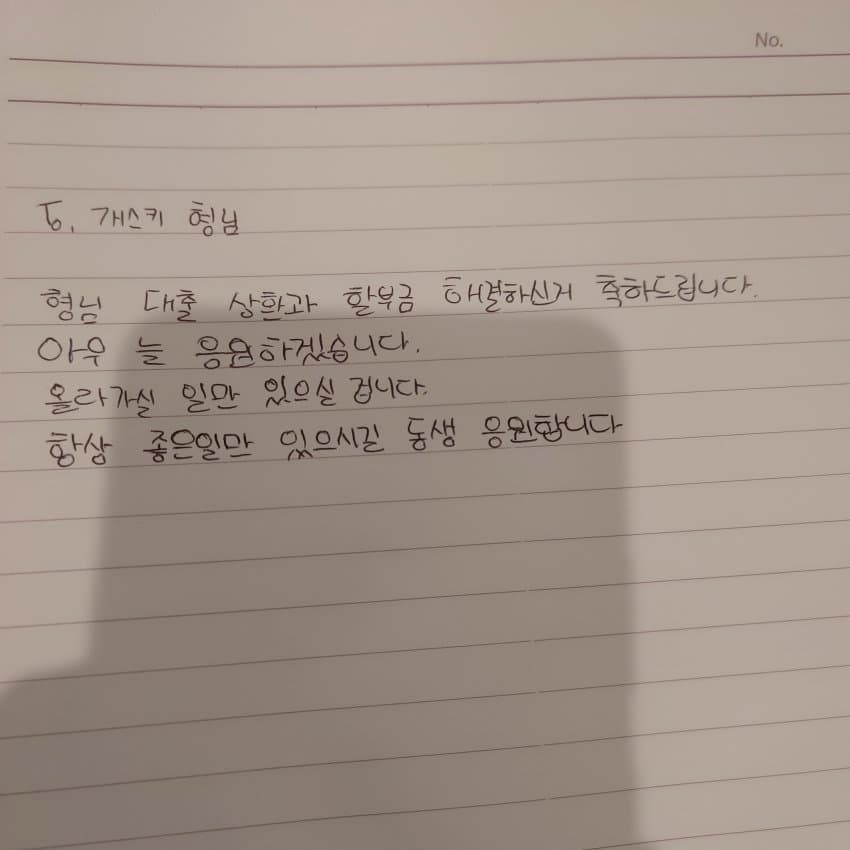 No.
To. 개스키 형님
형님 대출 상환과 할부금 해결하신거 축하드립니다.
아우 늘 응원하겠습니다.
올라가실 일만 있으실 겁니다.
항상 좋은일만 있으시길 동생 응원합니다